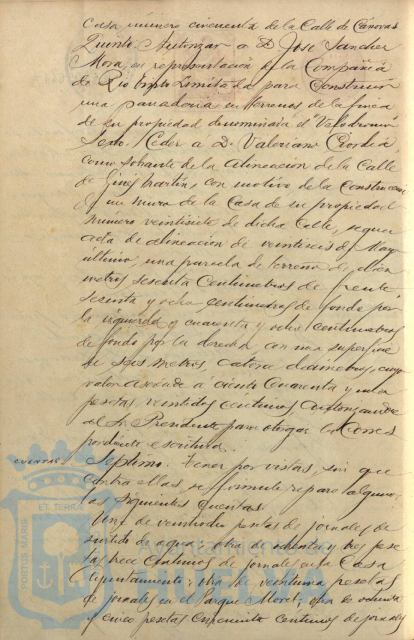 Casa número cincuenta de la Calle de Cánovas
Quinto. Autorizar a D. José Sanchez
Mora, en representación de la Compañía
de Rio Tinto Limitada para Construir
una panaderia en terrenos de la finca
de su propiedad denominada el "Velodromo"
Sexto. Ceder a D. Valeriano
como sobrante de la alineacion de la Calle
de Ginés Martin, con motivo de la Construccion
de un muro de la Casa de su propiedad
número veintisiete de dicha Calle, segun
acta de alineacion de veintiseis de Mayo
último, una parcela de terreno de diez
metros sesenta Centimetros de frente
sesenta y ocho centimetros de fondo por
la izquierda y cuarenta y ocho Centimetros
de fondo por la derecha con una superficie
de seis metros, catorce decimetros, cuyo
valor asciende a ciento Cuarenta y una
pesetas, veintidos centimos autorizando
al Sr. Presidente para otorgar la Corres
pondiente escritura.
cuentas Septimo. Tener por vistas, sin que
contra ellas se formule reparo alguno,
las siguientes cuentas.
Una de veintiocho pesetas de jornales de
surtido de agua, otra de ochenta y tres pese
tas trece Centimos de jornales en la Casa
Ayuntamiento; otra de veintiuna pesetas
de jornales en el Parque Moret; otra de ochenta
y cinco pesetas cincuenta Centimos de jornales
ET TERRA
PORTUS MARIS
Ayuntamiento de